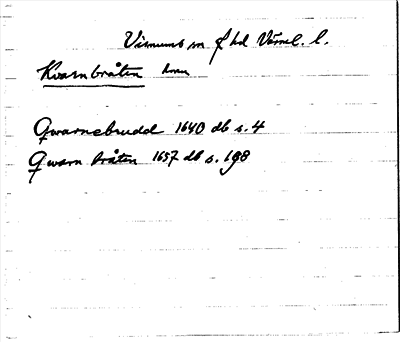 Visnums sn f hd Värml. l.
Kvarnbråten hmn
Qwarnebrudd 1640 db s. 4
Qwarn bråten 1657 db s. 198